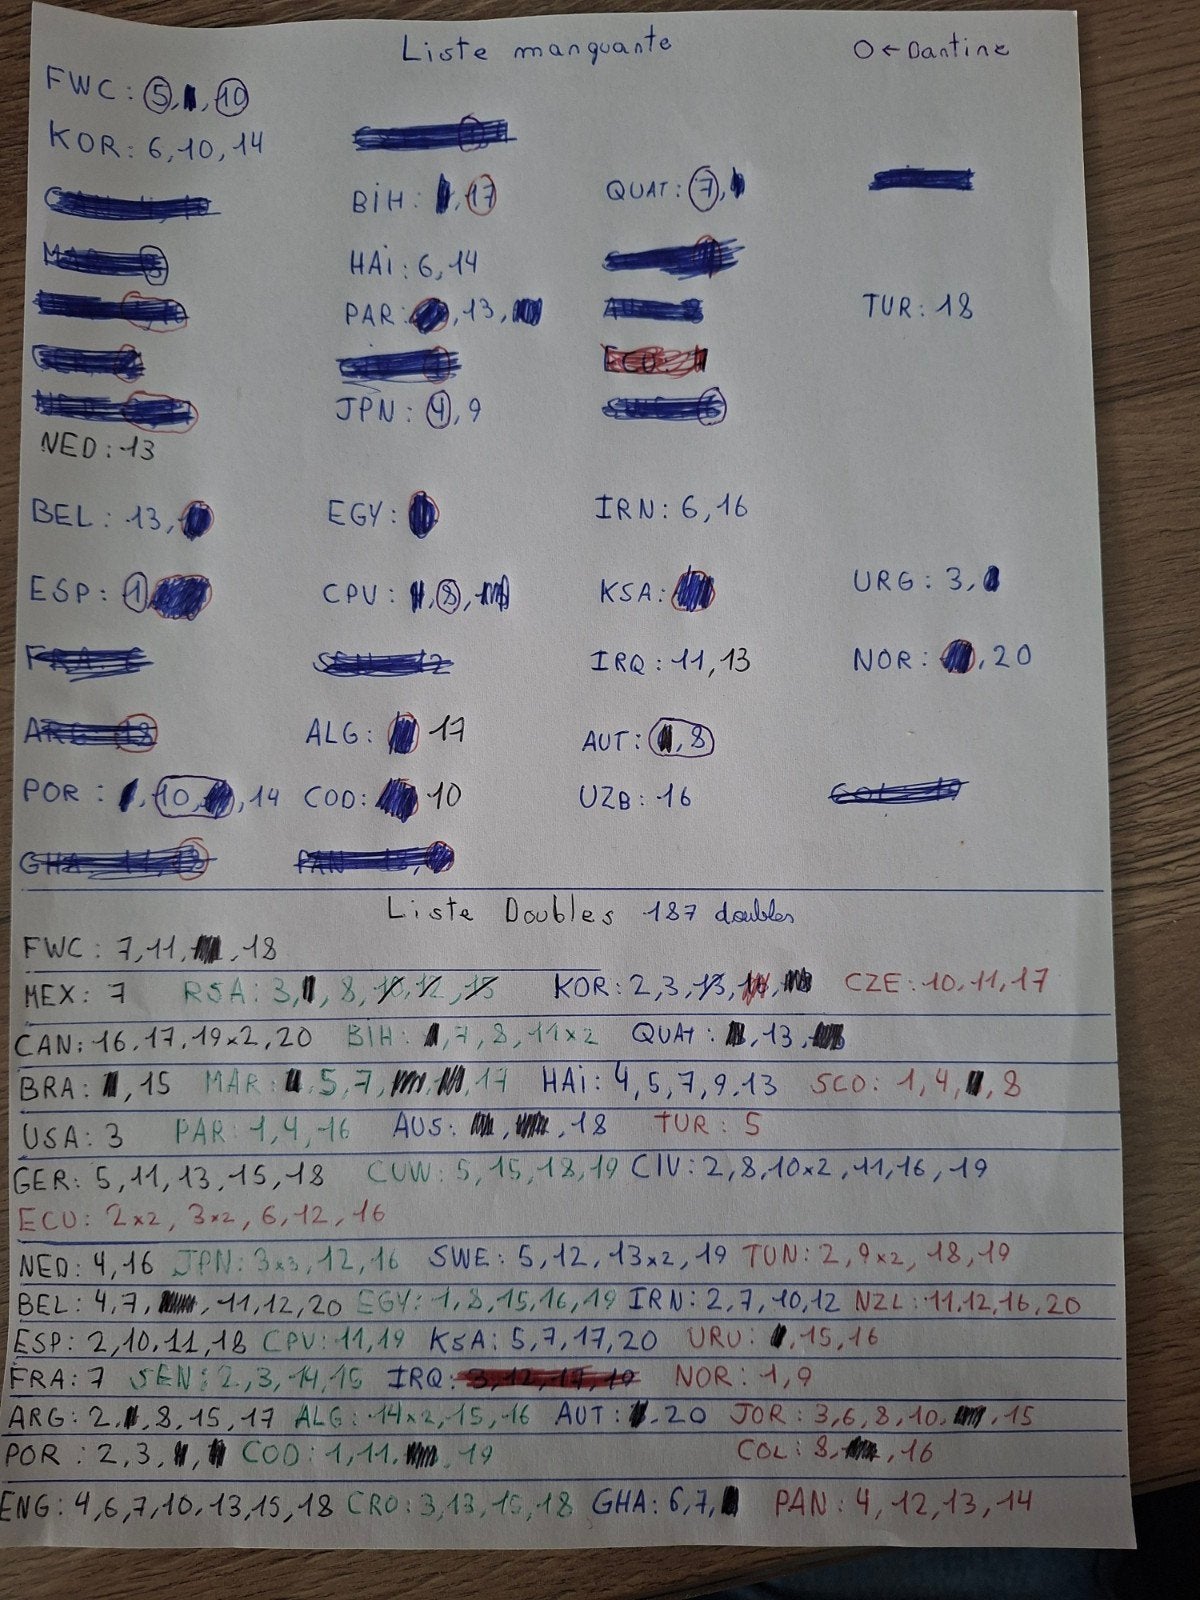 Liste manquante O ← Dantine
FWC : 5, 10
KOR : 6, 10, 14
BiH : 17 QUAT : 7,
HAi : 6, 14
PAR : , 13, TUR : 18
JPN : 4, 9
NED : 13
BEL : 13, EGY : IRN : 6, 16
ESP : 1 CPV : , 8, KSA : URG : 3,
FRA : SEN : 12 IRQ : 11, 13 NOR : , 20
ARG : 18 ALG : 17 AUT : , 8
POR : , 10, , 14 COD : 10 UZB : 16 COL : 19
GHA : 11, PAN :
Liste Doubles 187 doubles
FWC : 7, 11, , 18
MEX : 7 RSA : 3, , 8, 10, 12, 15 KOR : 2, 3, 13, CZE : 10, 11, 17
CAN : 16, 17, 19x2, 20 BiH : , 7, 8, 11x2 QUAT : , 13,
BRA : , 15 MAR : , 5, 7, , 17 HAi : 4, 5, 7, 9, 13 SCO : 1, 4, , 8
USA : 3 PAR : 1, 4, 16 AUS : , , 18 TUR : 5
GER : 5, 11, 13, 15, 18 CUW : 5, 15, 18, 19 CIV : 2, 8, 10x2, 11, 16, 19
ECU : 2x2, 3x2, 6, 12, 16
NED : 4, 16 JPN : 3x3, 12, 16 SWE : 5, 12, 13x2, 19 TUN : 2, 9x2, 18, 19
BEL : 4, 7, , 11, 12, 20 EGY : 1, 8, 15, 16, 19 IRN : 2, 7, 10, 12 NZL : 11, 12, 16, 20
ESP : 2, 10, 11, 18 CPV : 11, 19 KSA : 5, 7, 17, 20 URU : , 15, 16
FRA : 7 SEN : 2, 3, 14, 15 IRQ : 3, 12, 17, 19 NOR : 1, 9
ARG : 2, , 8, 15, 17 ALG : 14x2, 15, 16 AUT : , 20 JOR : 3, 6, 8, 10, , 15
POR : 2, 3, , COD : 1, 11, , 19 COL : 8, , 16
ENG : 4, 6, 7, 10, 13, 15, 18 CRO : 3, 13, 15, 18 GHA : 6, 7, PAN : 4, 12, 13, 14